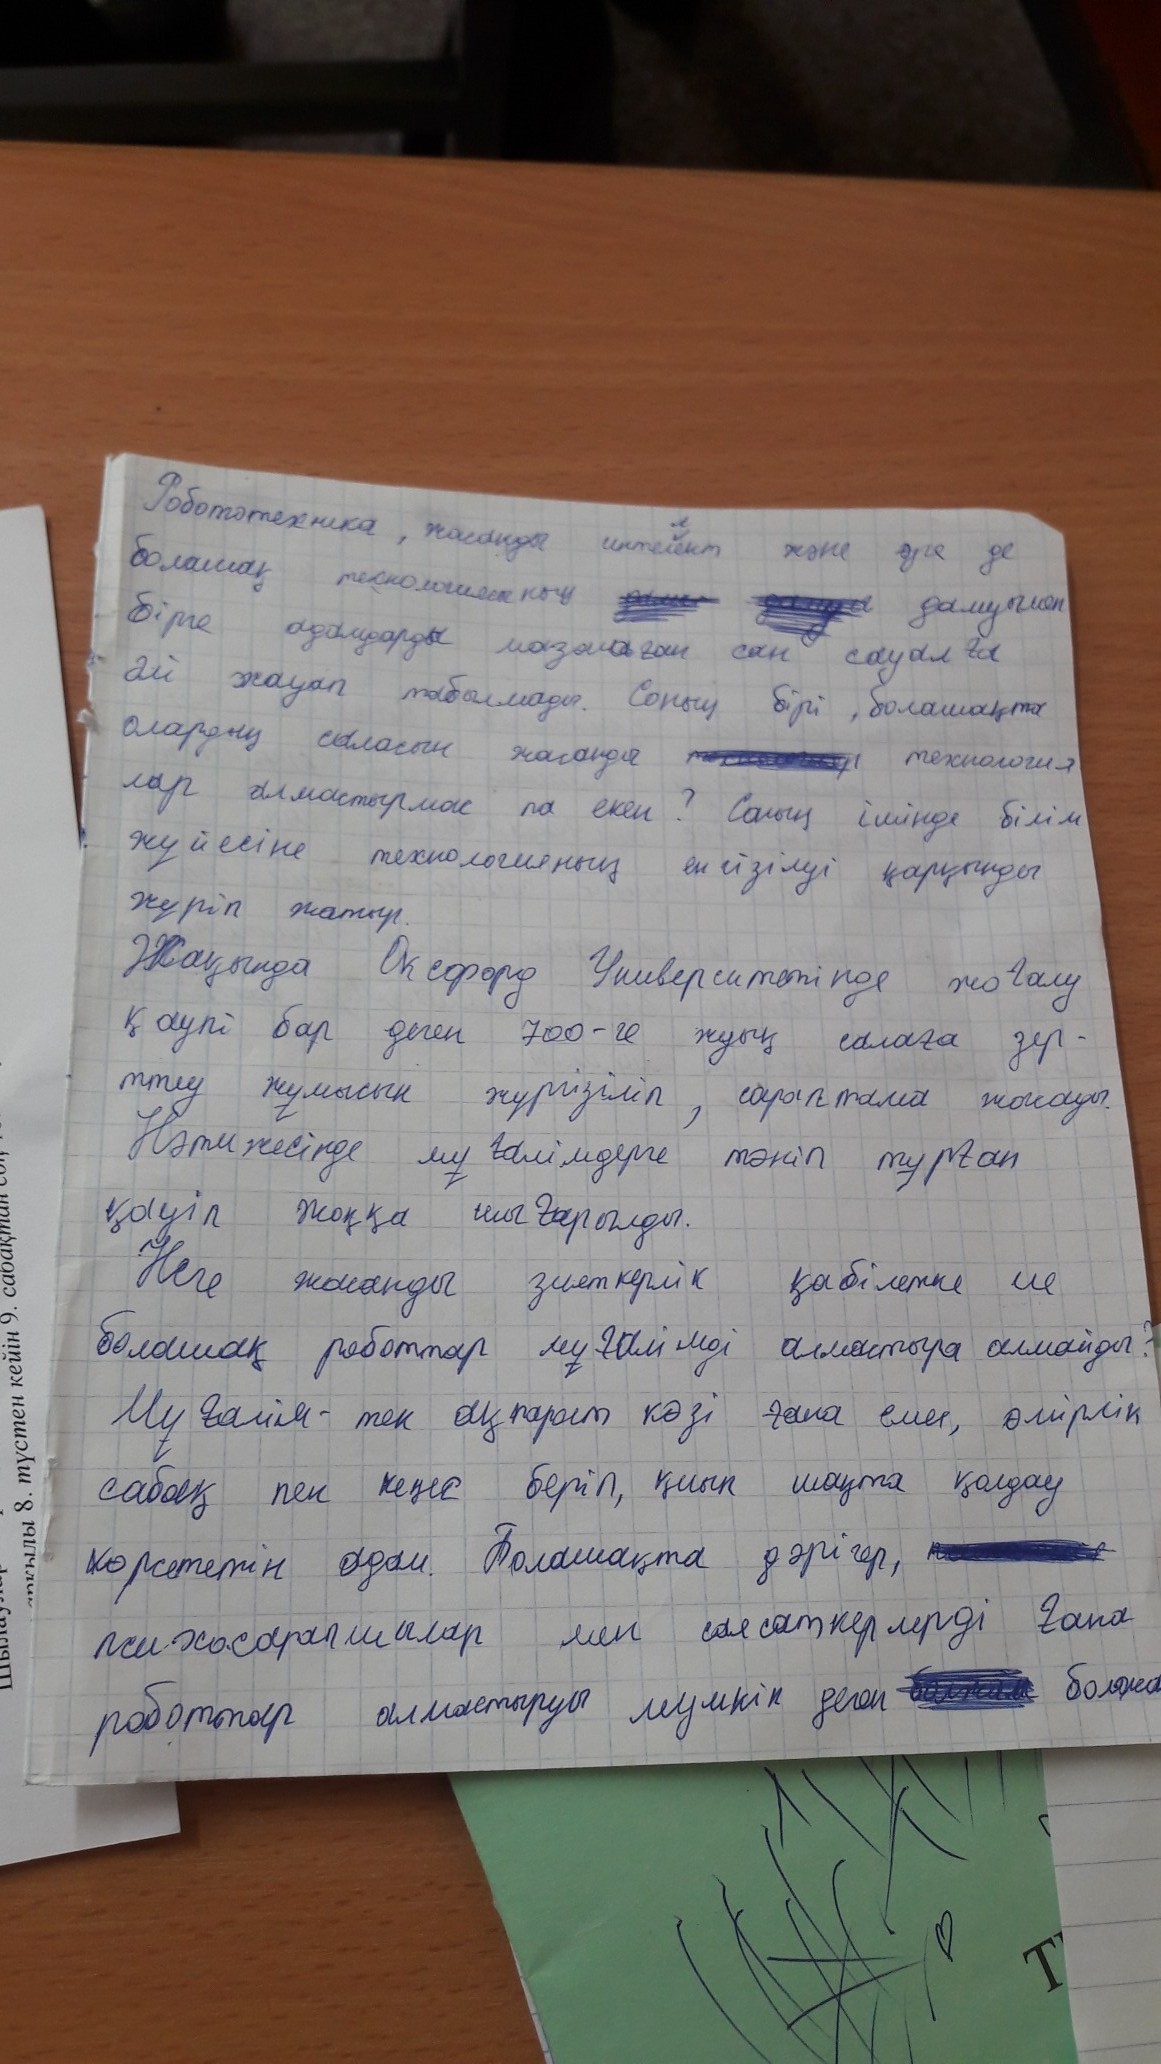 Робототехника, жасанды интелект және өзге де
болашақ технологияның дамуымен
бірге адамдарды мазалаған сан сауалға
әлі жауап табылмады. Соның бірі, болашақта
олардың саласын жасанды технология
лар алмастырмас па екен? Соның ішінде білім
жүйесіне технологияның енгізілуі қарқынды
жүріп жатыр.
Жақында Оксфорд Университетінде жоғалу
қаупі бар деген 700-ге жуық салаға зер-
ттеу жұмысын жүргізіліп, сараптама жасады.
Нәтижесінде мұғалімдерге төніп тұрған
қауіп жоққа шығарылды.
Неге жасанды зияткерлік қабілетке ие
болашақ роботтар мұғалімді алмастыра алмайды?
Мұғалім- тек ақпарат көзі ғана емес, өмірлік
сабақ пен кеңес беріп, қиын шақта қолдау
көрсететін адам. Болашақта дәрігер,
психосарапшылар мен саясаткерлерді ғана
роботтар алмастыруы мүмкін деген болжа
8. түстен кейін 9. сабақтан соң